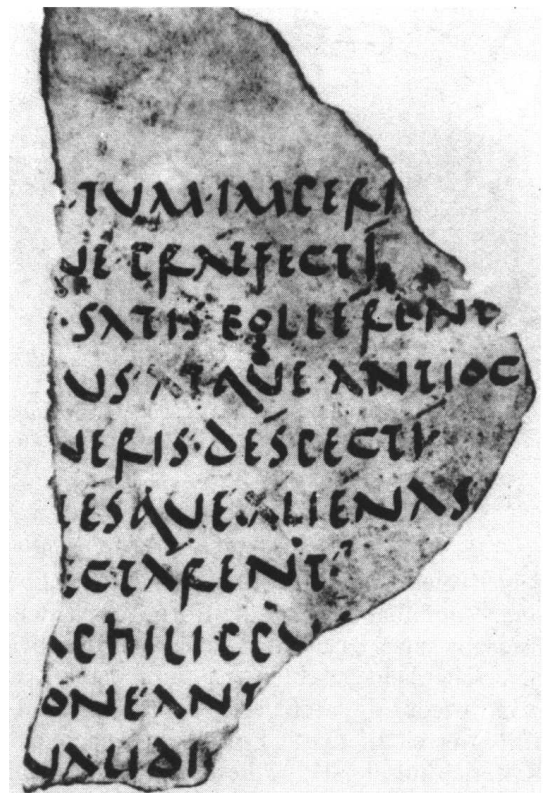 TUM·IMPERI
UE·PRAEFECTI
·SATIS·POLLERENT
US·ATQUE·ANTIOC
NERIS·DESPECTI
ESQUE·ALIENAS
ECTARENT
PHILIPPU
ONE·ANT
VALIDIS